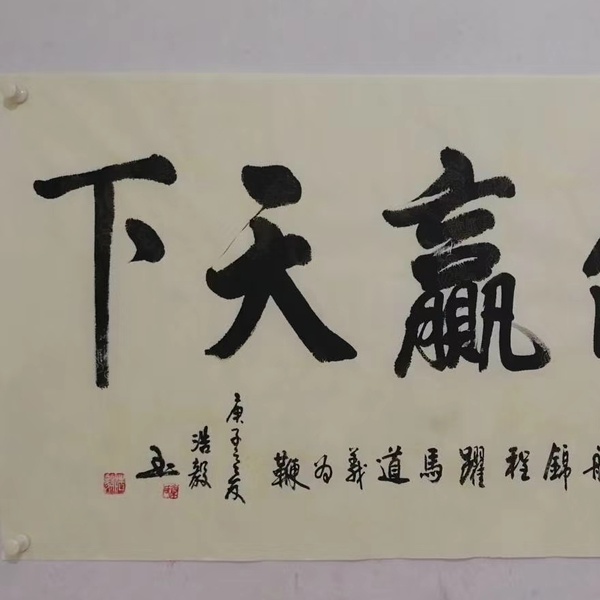 贏天下
錦程躍馬道義为鞭
庚子之夏
浩毅